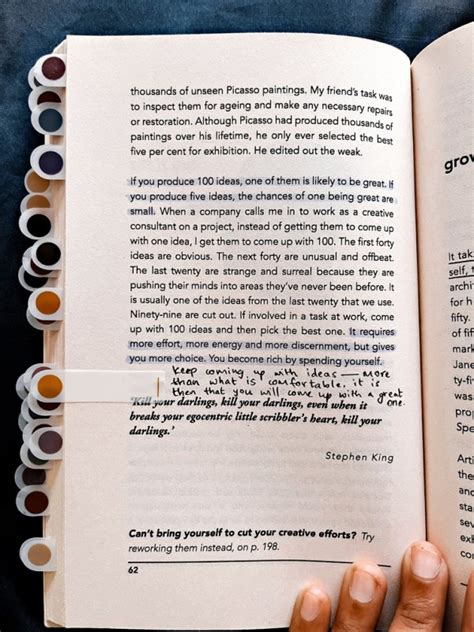 thousands of unseen Picasso paintings. My friend's task was
to inspect them for ageing and make any necessary repairs
or restoration. Although Picasso had produced thousands of
paintings over his lifetime, he only ever selected the best
five per cent for exhibition. He edited out the weak.
If you produce 100 ideas, one of them is likely to be great. If
you produce five ideas, the chances of one being great are
small. When a company calls me in to work as a creative
consultant on a project, instead of getting them to come up
with one idea, I get them to come up with 100. The first forty
ideas are obvious. The next forty are unusual and offbeat.
The last twenty are strange and surreal because they are
pushing their minds into areas they've never been before. It
is usually one of the ideas from the last twenty that we use.
Ninety-nine are cut out. If involved in a task at work, come
up with 100 ideas and then pick the best one. It requires
more effort, more energy and more discernment, but gives
you more choice. You become rich by spending yourself.
Keep coming up with ideas — more
than what is comfortable. it is
then that you will come up with a great
one.
'Kill your darlings, kill your darlings, even when it
breaks your egocentric little scribbler's heart, kill your
darlings.'
Stephen King
Can't bring yourself to cut your creative efforts? Try
reworking them instead, on p. 198.
62
grov
It tak
self, t
exam
bette
It is b
for hi
fifty.
fifties
made
Jane
ty-fi
was
pop
Spe
Arti
the